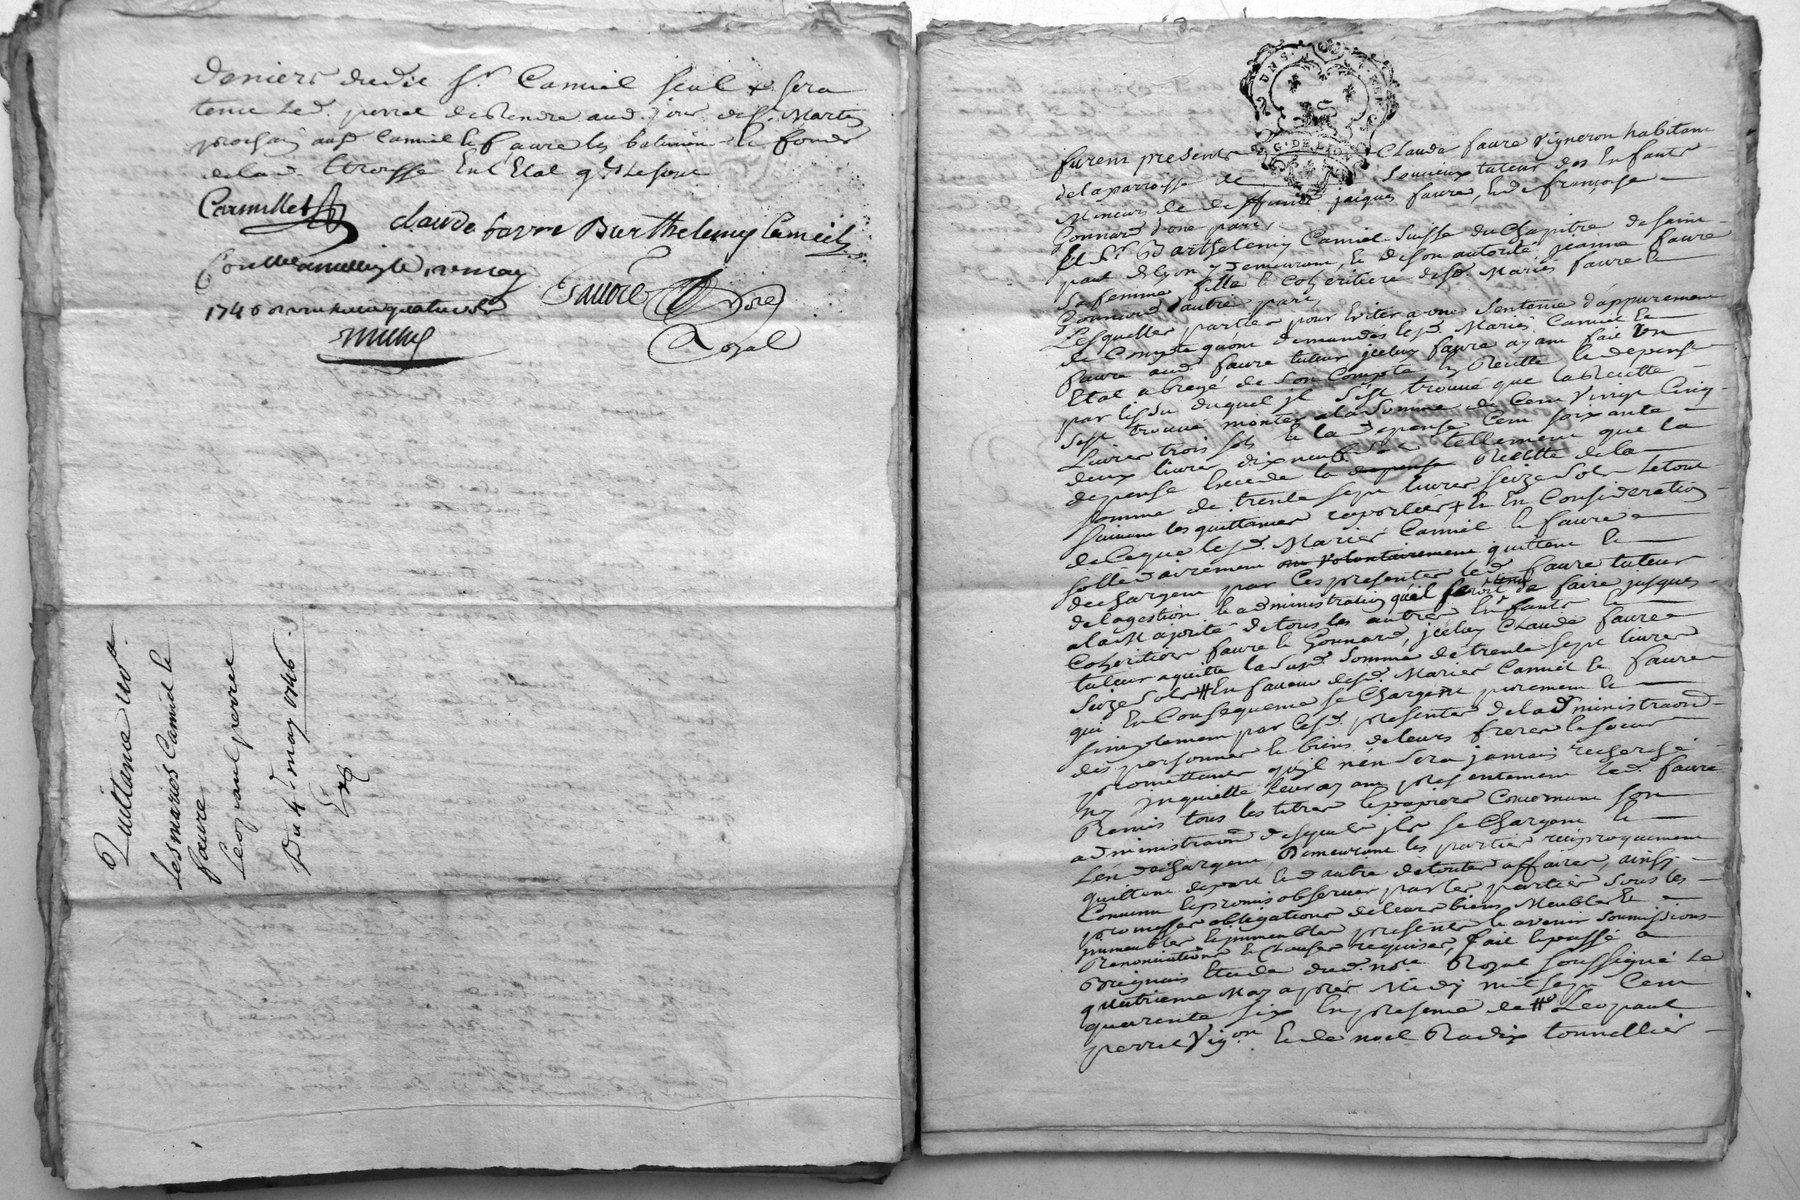 deniers dudit Sr. Camiel seul & sera
tenu led. perret de Rendre aud. jour de St. Martin
prochain aud. Camiel & faure les batiment & fonds
de lad. Etat qu'ils sont
claude favre Barthelemy Camiel
1746
Royal
Quittance
Lesd mariés Camiel &
faure
Leopaul perret
Du 4e. may 1746
Exp.
furent presents Claude faure Vigneron habitant
de la parroisse de Soucieux tuteur des Enfants
Mineurs de deffunts jacques faure, & françoise
Gonnard d'une part
Et Sr. Barthelemy Camiel Suisse du Chapitre de Saint
paul de Lyon y demeurant, & de son autorité jeanne faure
sa femme fille & Coheritiere desd. Mariés faure &
Gonnard d'autre part,
Lesquelles parties pour Eviter a une Sentence d'appurement
de Compte qu'ont demandés lesd. Mariés Camiel &
faure aud. faure tuteur jceluy faure ayant fait Un
Etat abregé de son Compte en Recette & depense
par lissu duquel jl s'est trouvé que la Recette
s'est trouvé monter a la somme de Cent Vingt Cinq
Livres trois sols & la depense Cent soixante
deux livres dixneuf sols tellement que la
depense Excede la depense Recette de la
somme de trente sept livres seize sols le tout
suivant les quittances raportées & En Consideration
de ce que lesd. Mariés Camiel & faure
sollidairement ont volontairement quittent &
dechargent par Ces presentes led. faure tuteur
de la gestion & administration qu'il seroit tenu de faire jusques
a la Majorité de tous les autres Enfants &
Coheritiers faure & Gonnard, jceluy Claude faure
tuteur aquitte la susd. somme de trente sept livres
seize sols En faveur desd. Mariés Camiel & faure
qui En Consequence se Chargent purement &
simplement par Cesd. presentes de lad. administraon.
des personnes & biens de leurs freres & soeurs
promettants qu'jl n'en sera jamais recherché
ny jnquietté Leur ayant presentement led. faure
Remis tous les titres & papiers Concernant son
administraon. desquels jls se Chargent &
L'en dechargent, Demeurant les parties reciproquement
quittent de part & d'autre de toutes affaires, ainsy
Convenu & promis observer par les parties sous les
promesses obligations de leurs biens Meubles &
jmmeubles presents & avenir soumissions
Renonciations & Clauses requises, fait & passé a
Brignais Etude dud. note. Royal soussigné Le
quatrieme May après Midy mil sept Cent
quarante six En presence de Leopaul
perret Vigon. & de noel Radix tonnellier